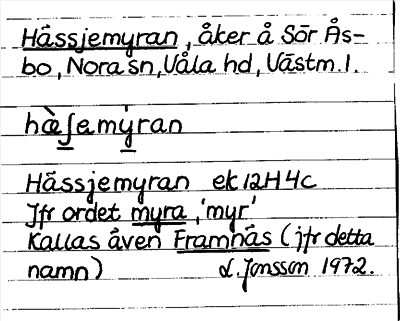 Hässjemyran, åker å Sör Ås-
bo, Nora sn, Våla hd, Västm. l.
hæ̀ʃemýran
Hässjemyran ek 12H4c
Jfr ordet myra, 'myr'
Kallas även Framnäs (jfr detta
namn) L. Jonsson 1972.